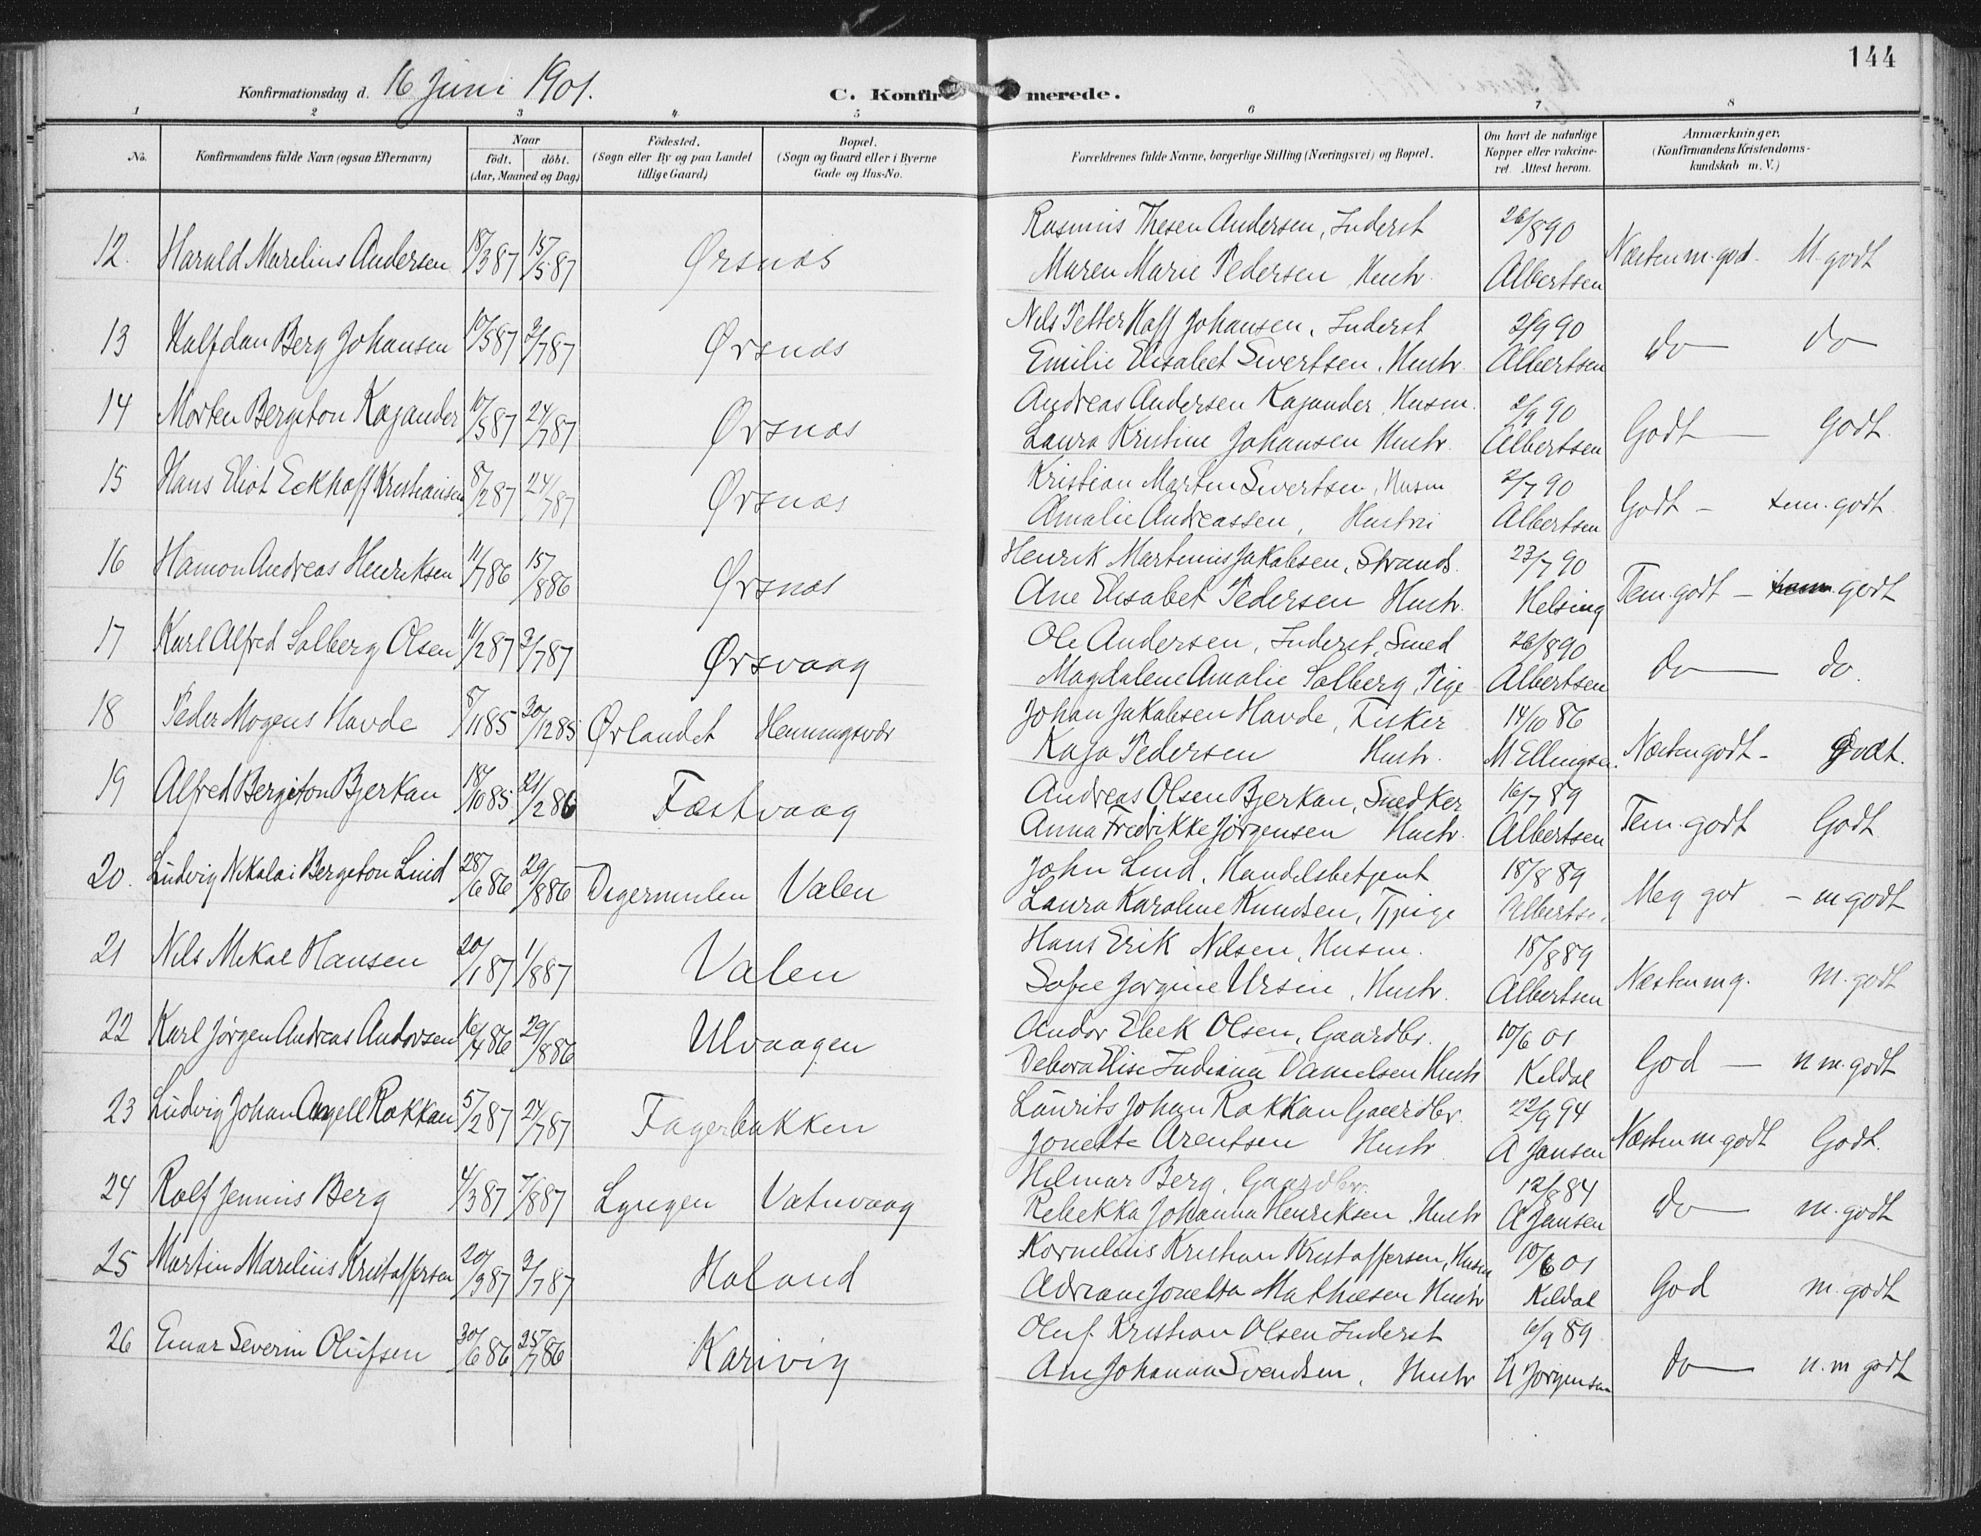 144
Konfirmationsdag d. 16 Juni 1901.
C. Konfirmerede.
1 2 3 4 5 6 7 8
No. Konfirmandens fulde Navn (ogsaa Efternavn) Naar födt. döbt. (Aar, Maaned og Dag) Födested. (Sogn eller By og paa Landet tillige Gaard) Bopæl. (Sogn og Gaard eller i Byerne Gade og Hus-No. Forældrenes fulde Navne, borgerlige Stilling (Næringsvei) og Bopæl. Om havt de naturlige Kopper eller vakcineret. Attest herom. Anmærkninger. (Konfirmandens Kristendomskundskab m. V.)
Rasmus Thesen Andersen, Inderst 26/8 90
12. Harald Marelius Andersen 18/3 87 15/5 87 Ørsnæs Næsten m. god. M. godt
Maren Marie Pedersen, Hustr. Albertsen
Nils Petter Hoff Johansen, Inderst 2/9 90
13 Halfdan Berg Johansen 10/5 87 3/7 87 Ørsnæs do do
Emilie Elisabet Sivertsen, Hustr. Albertsen
Andreas Andersen Kajander, Husm. 2/9 90
14 Morten Bergeton Kajander 10/5 87 24/7 87 Ørsnæs Godt godt
Laura Kristine Johansen Hustr. Albertsen
Kristian Martin Sivertsen, Husm 2/7 90
15 Hans Eliot Eckhoff Kristiansen 8/2 87 24/7 87 Ørsnæs Godt - tem. godt
Amalie Andreassen, Hustru Albertsen
Henrik Martinus Jakobsen, Strands. 23/7 90
16 Hamon Andreas Henriksen 11/7 86 15/8 86 Ørsnæs Tem. godt - godt
Ane Elisabet Pedersen Hustr. Helsing
Ole Andersen, Inderst, Smed 26/8 90
17 Karl Alfred Solberg Olsen 11/2 87 3/7 87 Ørsvaag do do.
Magdalene Amalie Solberg, Pige Albertsen
Johan Jakobsen Havde, Fisker 14/10 86
18 Peder Mogens Havde 8/11 85 30/12 85 Ørlandet Henningsvær Næsten godt - Godt.
Kaja Pedersen Hustr. M Ellingsen
Andreas Olsen Bjerkan, Snedker 16/7 89
19 Alfred Bergeton Bjerkan 18/10 85 21/2 86 Fæstvaag Tem. godt Godt
Anna Fredrikke Jørgensen Hustr. Albertsen
John Lind, Handelsbetjent 18/8 89
20. Ludvig Nikolai Bergeton Lind 28/6 86 29/8 86 Digermulen Valen Meg god - m godt
Laura Karoline Knudsen, Tjpige Albertse.
Hans Erik Nilsen, Husm. 18/8 89
21 Nils Mikal Hansen 20/1 87 1/8 87 Valen Næsten m g. M. godt
Sofie Jorgine Ursin, Hustr. Albertsen
Andor Ebek Olsen, Gaardbr. 10/6 01
22 Karl Jørgen Andreas Andorsen 16/4 86 29/8 86 Ulvaagen God - n m. godt
Debora Elise Indiana Danielsen Hustr Keldal
Laurits Johan Rokkan Gaardbr. 22/9 94
23 Ludvig Johan Angell Rokkan 5/2 87 24/7 87 Fagerbakken Næsten m godt Godt.
Jonette Arentsen Hustr. A Jansen
Hilmar Berg, Gaardbr. 12/8 84
24 Rolf Jennius Berg 4/3 87 7/8 87 Lyngen Vatnvaag do m. godt
Rebekka Johanna Henriksen, Hustr A Jansen
Kornelius Kristian Kristoffersen, Husm 10/6 01
25 Martin Marelius Kristoffersen 20/3 87 3/7 87 Holand God m. godt
Adriane Jonetta Mathiesen Hustr Keldal
Oluf Kristian Olsen Inderst 6/9 89
26 Einar Severin Olufsen 30/6 86 25/7 86 Karivig do n. m godt
Ane Johanna Svendsen, Hustr N Jørgensen